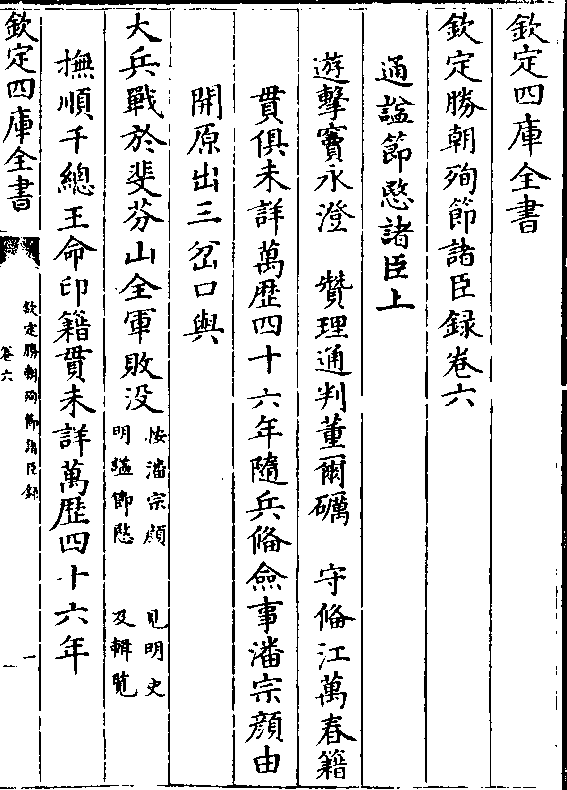 欽定四庫全書
欽定勝朝殉節諸臣録卷六
通諡節愍諸臣上
遊擊竇永澄　贊理通判董爾礪　守偹江萬春籍
貫俱未詳萬歴四十六年隨兵偹僉事潘宗顔由
開原出三岔口與
大兵戰於斐芬山全軍敗没按潘宗顔見明史
明諡節愍及輯覧
撫順千總王命印籍貫未詳萬歴四十六年
欽定四庫全書
欽定勝朝殉節諸臣録
卷六
一